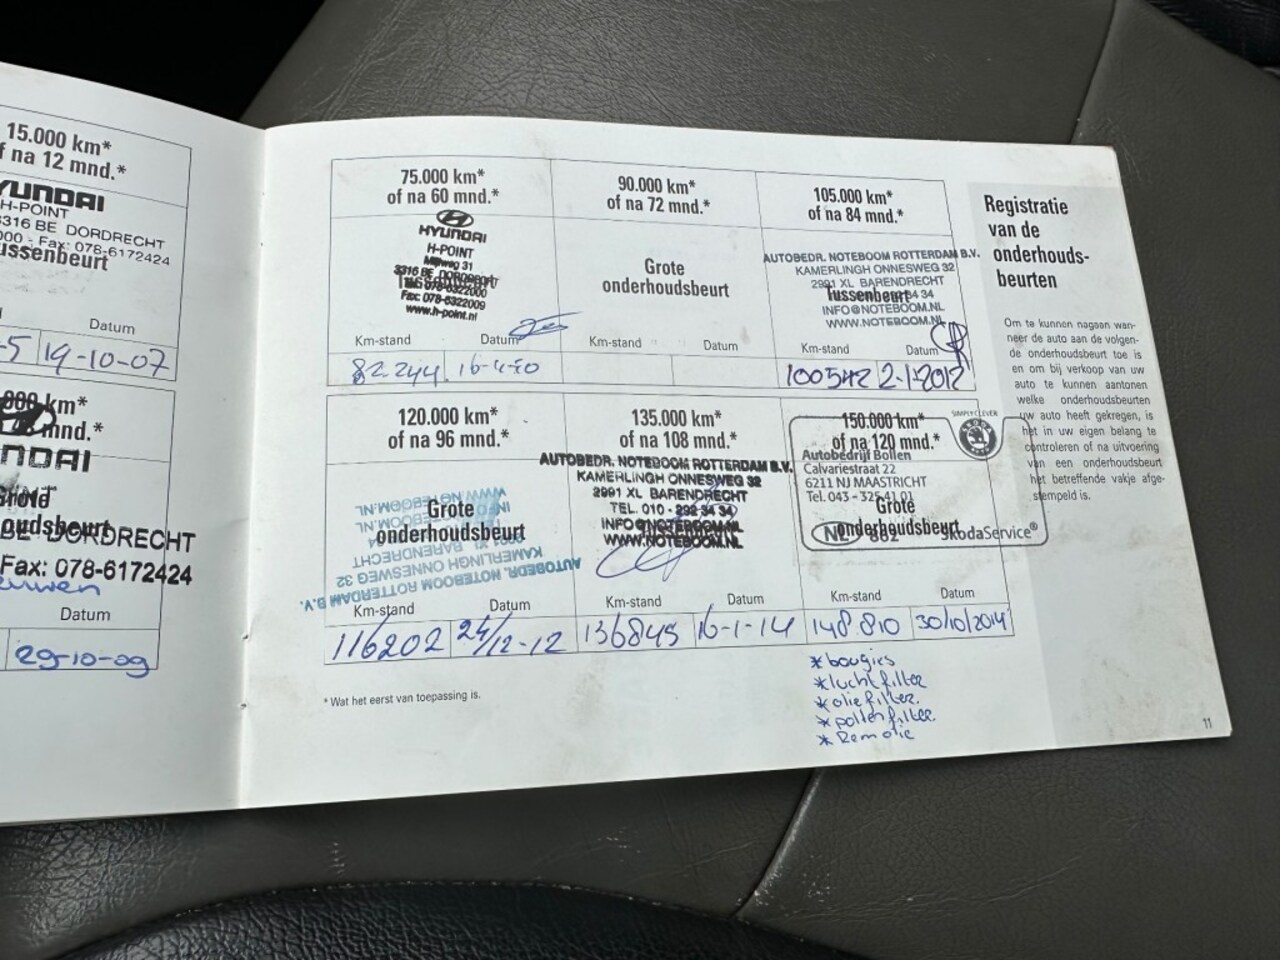 15.000 km*
f na 12 mnd.*
YUNDAI
H-POINT
3316 BE DORDRECHT
000 - Fax: 078-6172424
ussenbeurt
Datum
-5 19-10-07
000 km*
mnd.*
NDAI
Grote
oudsbeurt
BE DORDRECHT
Fax: 078-6172424
Datum
29-10-09
75.000 km*
of na 60 mnd.*
HYUNDAI
H-POINT
Mijlweg 31
3316 BE DORDRECHT
Fax: 078-6322009
www.h-point.nl
Km-stand Datum
82.244 16-4-10
90.000 km*
of na 72 mnd.*
Grote
onderhoudsbeurt
Km-stand Datum
105.000 km*
of na 84 mnd.*
AUTOBEDR. NOTEBOOM ROTTERDAM B.V.
KAMERLINGH ONNESWEG 32
2991 XL BARENDRECHT
Tussenbeurt 34 34
INFO@NOTEBOOM.NL
WWW.NOTEBOOM.NL
Km-stand Datum
100542 2-1-2012
120.000 km*
of na 96 mnd.*
Grote
onderhoudsbeurt
AUTOBEDR. NOTEBOOM ROTTERDAM B.V.
KAMERLINGH ONNESWEG 32
2991 XL BARENDRECHT
INFO@NOTEBOOM.NL
WWW.NOTEBOOM.NL
Km-stand Datum
116202 24/12-12
135.000 km*
of na 108 mnd.*
AUTOBEDR. NOTEBOOM ROTTERDAM B.V.
KAMERLINGH ONNESWEG 32
2991 XL BARENDRECHT
TEL. 010 - 292 34 34
INFO@NOTEBOOM.NL
WWW.NOTEBOOM.NL
Km-stand Datum
136845 16-1-14
150.000 km*
of na 120 mnd.*
SIMPLY CLEVER
SKODA
Autobedrijf Bollen
Calvariestraat 22
6211 NJ MAASTRICHT
Tel. 043 - 325 41 01
Grote
onderhoudsbeurt
NL 882 SkodaService®
Km-stand Datum
148.810 30/10/2014
* bougies
* luchtfilter
* oliefilter.
* pollenfilter.
* Remolie
* Wat het eerst van toepassing is.
Registratie
van de
onderhouds-
beurten
Om te kunnen nagaan wan-
neer de auto aan de volgen-
de onderhoudsbeurt toe is
en om bij verkoop van uw
auto te kunnen aantonen
welke onderhoudsbeurten
uw auto heeft gekregen, is
het in uw eigen belang te
controleren of na uitvoering
van een onderhoudsbeurt
het betreffende vakje afge-
stempeld is.
11